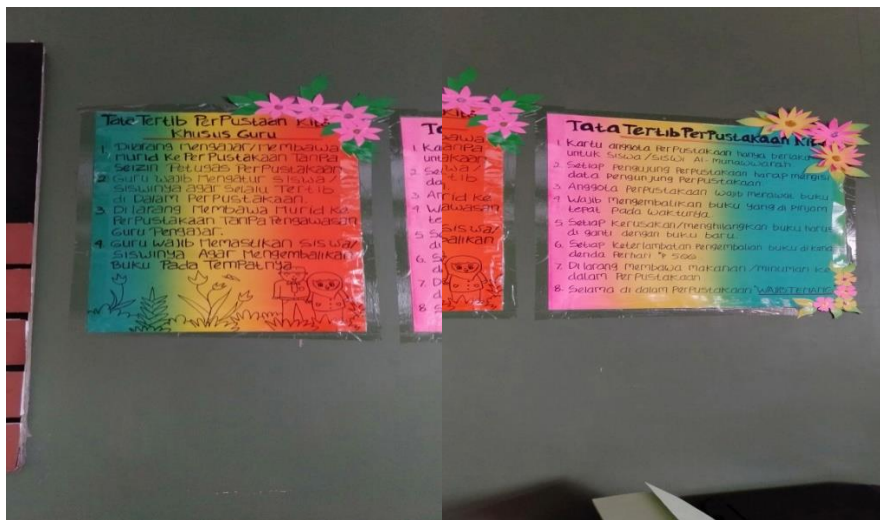 Tata Tertib Perpustaan Kita
Khusus Guru
1. Dilarang mengajar/membawa
murid ke Perpustakaan Tanpa
Seizin Petugas Perpustakaan
2. Guru wajib mengatur siswa/
siswinya agar selalu Tertib
di Dalam Perpustakaan.
3. Di larang Membawa Murid ke
Perpustakaan Tanpa Pengawasan
Guru Pengajar.
4. Guru wajib Memastikan siswa/
siswinya Agar Mengembalikan
Buku Pada Tempatnya
Tata Tertib Perpustakaan Kita
1. Kartu anggota Perpustakaan hanya berlaku
untuk siswa/siswi Al-Munawwarah
2. Setiap Pengunjung Perpustakaan harap mengisi
data Pengunjung Perpustakaan.
3. Anggota Perpustakaan wajib merawat buku
4. Wajib Mengembalikan buku yang di Pinjam
tepat Pada waktunya.
5. Setiap Kerusakan/menghilangkan buku harus
di ganti dengan buku baru.
6. Setiap Keterlambatan Pengembalian buku di kenai
denda Perhari 500
7. Dilarang Membawa makanan/minuman ke
dalam Perpustakaan
8. Selama di dalam Perpustakaan WAJIB TENANG